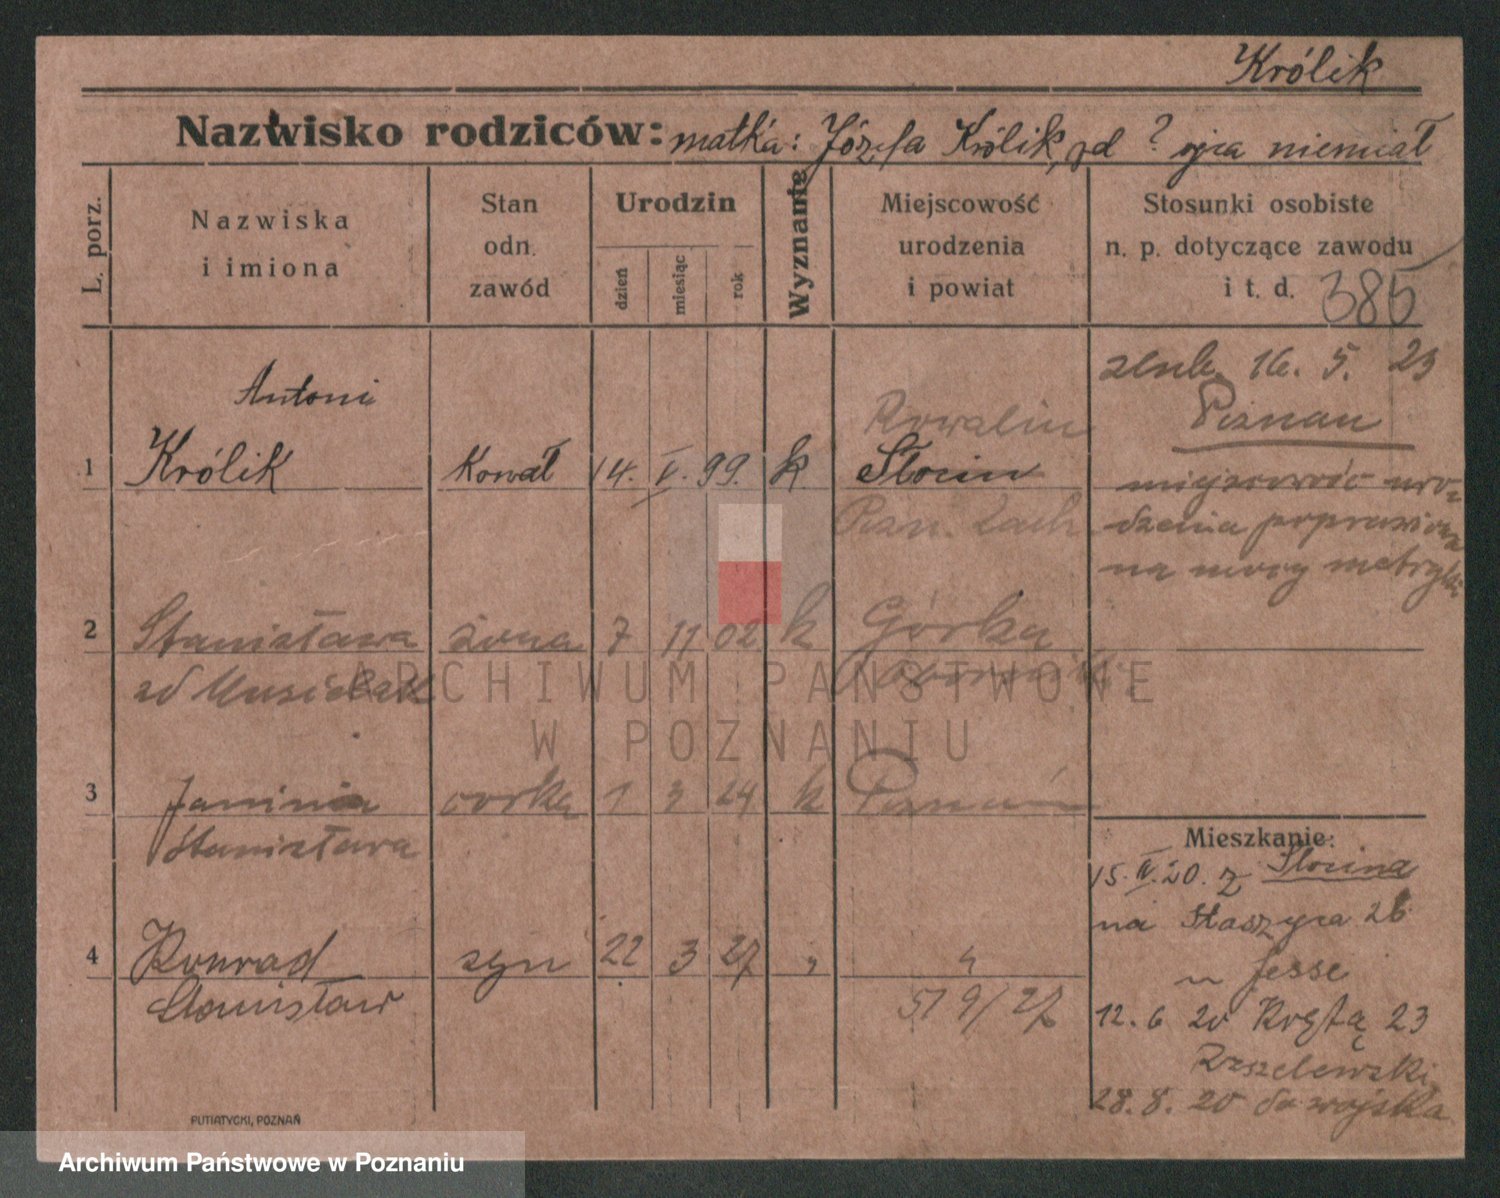 Królik
Nazwisko rodziców: matka: Józefa Królik, od ? ojca niemiał
L. porz.
Nazwiska
i imiona
Stan
odn.
zawód
Urodzin
dzień
miesiąc
rok
Wyznanie
Miejscowość
urodzenia
i powiat
Stosunki osobiste
n. p. dotyczące zawodu
i t. d. 385
1
Antoni
Królik
Kowal
14. V. 99. k
Rowalin
Słocin
Pozn. Zach
16. 5. 23
Poznań
miejscowość uro-
dzenia poprawiona
na mocy metryki
2 Stanisława żona 7 11 02 k Górka
3 Janina córka 1 3 24 k Poznań
Stanisława
4 Konrad syn 22 3 27 "
Stanisław
51 9/27
Mieszkanie:
15. IV. 20. z Słocina
na Staszyca 26
u Jesse
12. 6 20 Krętą 23
28. 8. 20 do wojska
PUTIATYCKI, POZNAŃ
ARCHIWUM PAŃSTWOWE
W POZNANIU
Archiwum Państwowe w Poznaniu